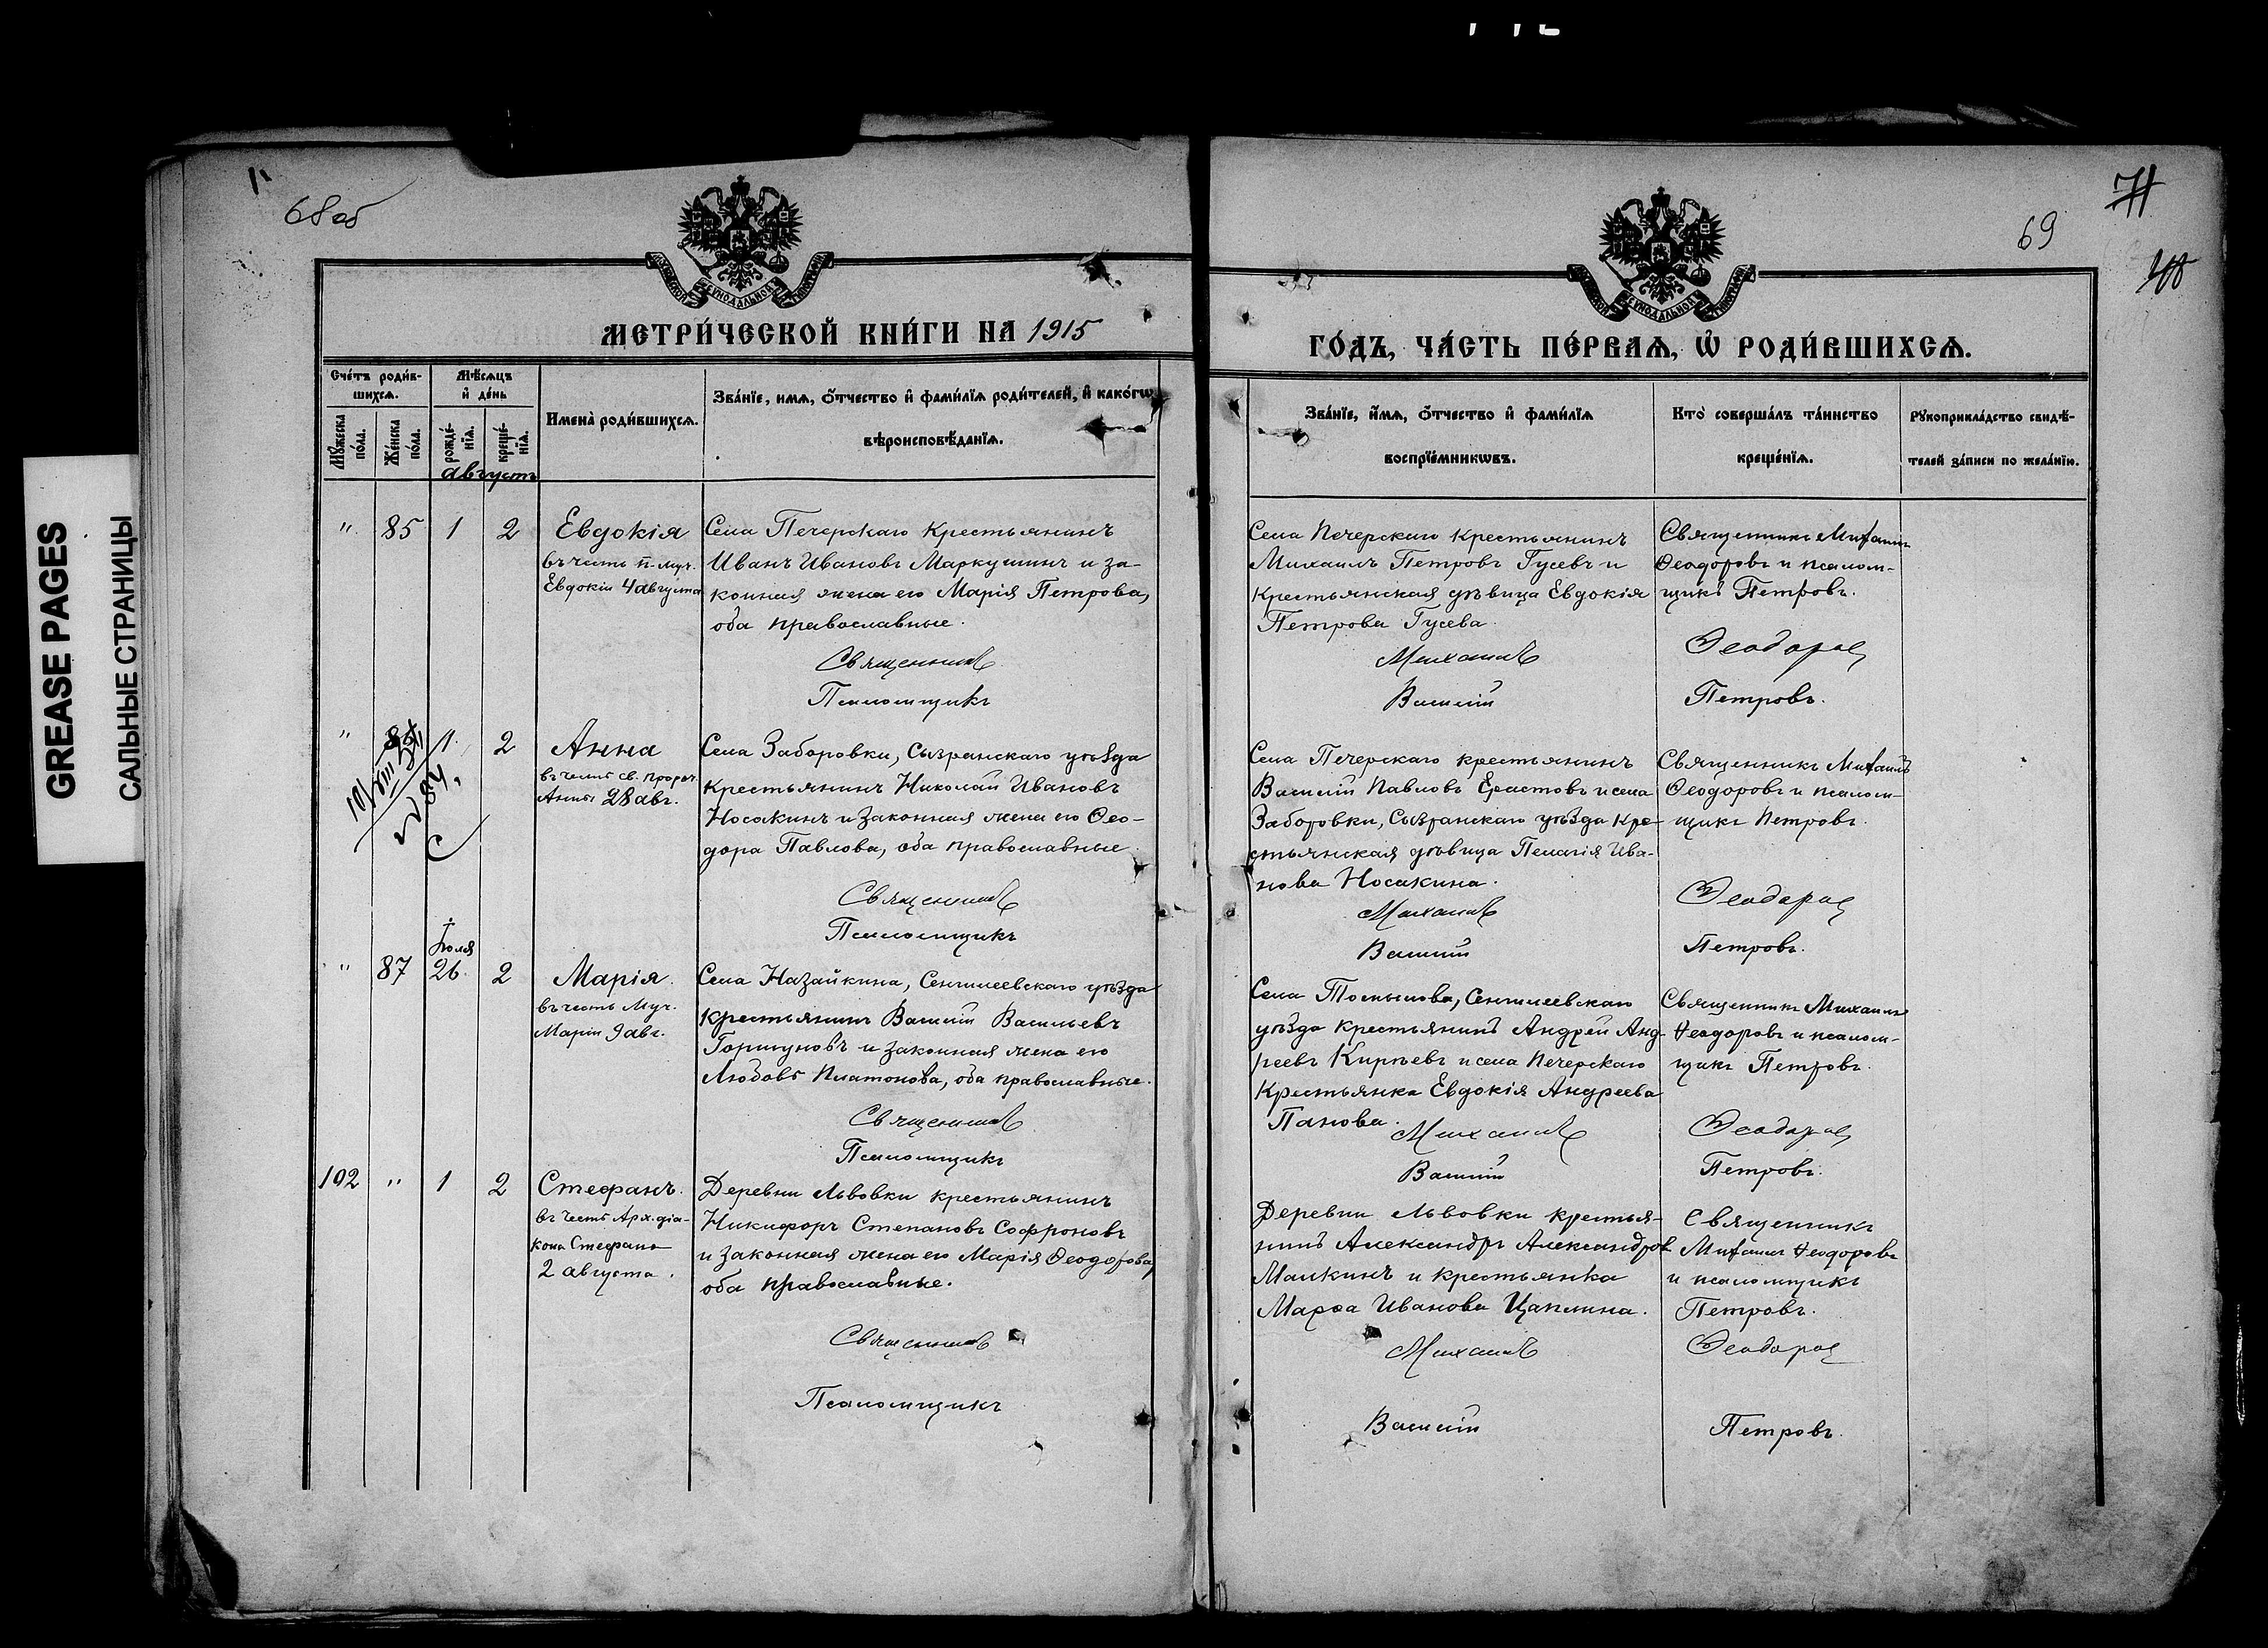 GREASE PAGES
САЛЬНЫЕ СТРАНИЦЫ
68 об
МЕТРИ́ЧЕСКОЙ КНИ́ГИ НА 1915
Сче́тъ роди́в-
шихсѧ.
Мѣ́сѧцъ
и҆ де́нь
Мꙋ́жеска по́ла.
Же́нска по́ла.
рожде́-
нїѧ.
креще́-
нїѧ.
Имена̀ роди́вшихсѧ.
Зва́нїе, и́мѧ, ѻ҆́тчество и҆ фами́лїѧ роди́телей, и҆ како́гѡ
вѣроисповѣ́данїѧ.
Августъ
" 85 1 2
Евдокія
въ честь п. муч.
Евдокіи 4 августа
Села Печерскаго Крестьянинъ
Иванъ Ивановъ Маркушинъ и за-
конная жена его Марія Петрова,
оба православные.
Священникъ
Псаломщикъ
" 1 2
Анна
въ честь св. Прор.
Анны 28 авг.
Села Заборовки, Сызранскаго уѣзда
крестьянинъ Николай Ивановъ
Носакинъ и законная жена его Ѳео-
дора Павлова, оба православные.
Священникъ
Псаломщикъ
Іюля
" 87 26 2
Марія.
въ честь Муч.
Маріи 9 авг.
Села Назайкина, Сенгилеевскаго уѣзда
крестьянинъ Василій Васильевъ
Горшуновъ и законная жена его
Любовь Платонова, оба православные.
Священникъ
Псаломщикъ
102 " 1 2
Стефанъ.
въ честь Арх. діа-
кона Стефана
2 августа.
Деревни Львовки крестьянинъ
Никифоръ Степановъ Софроновъ
и законная жена его Марія Ѳеодорова,
оба православные.
Священникъ
Псаломщикъ
69
71
ГО́ДЪ, ЧА́СТЬ ПЕ́РВАѦ, Ѽ РОДИ́ВШИХСѦ.
Зва́нїе, и́мѧ, ѻ҆́тчество и҆ фами́лїѧ
воспрїе́мникѡвъ.
Кто̀ соверша́лъ та́инство
креще́нїѧ.
Рꙋкоприкла́дство свидѣ́-
телей за́писи по жела́нїю.
Села Печерскаго крестьянинъ
Михаилъ Петровъ Гусевъ и
крестьянская дѣвица Евдокія
Петрова Гусева.
Михаилъ
Василій
Священникъ Михаилъ
Ѳеодоровъ и псалом-
щикъ Петровъ.
Ѳеодоровъ
Петровъ.
Села Печерскаго крестьянинъ
Василій Павловъ Ерастовъ и села
Заборовки, Сызранскаго уѣзда кре-
стьянская дѣвица Пелагія Ива-
нова Носакина.
Михаилъ
Василій
Священникъ Михаилъ
Ѳеодоровъ и псалом-
щикъ Петровъ.
Ѳеодоровъ
Петровъ.
Села Сенгилеевскаго
уѣзда крестьянинъ Андрей Анд-
реевъ Кирѣевъ и села Печерскаго
Крестьянка Евдокія Андреева
Панова.
Михаилъ
Василій
Священникъ Михаилъ
Ѳеодоровъ и псалом-
щикъ Петровъ.
Ѳеодоровъ
Петровъ.
Деревни Львовки крестья-
нинъ Александръ Александров
Малкинъ и крестьянка
Марѳа Иванова Цаплина.
Михаилъ
Василій
Священникъ
Михаилъ Ѳеодоровъ
и псаломщикъ
Петровъ.
Ѳеодоровъ
Петровъ.